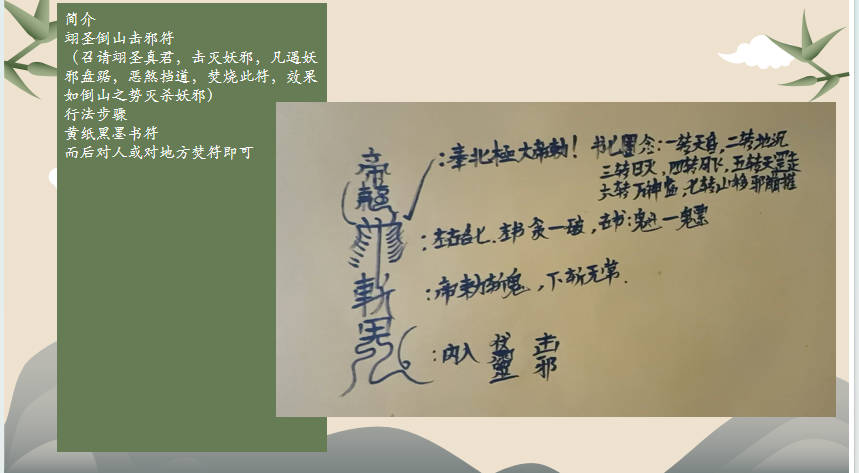 简介
翊圣倒山击邪符
（召请翊圣真君，击灭妖邪，凡遇妖
邪盘踞，恶煞挡道，焚烧此符，效果
如倒山之势灭杀妖邪）
行法步骤
黄纸黑墨书符
而后对人或对地方焚符即可
：奉北極大帝勅！书七墨念：一转天昏，二转地沉
三转日火，四转风飞，五转天罡走
六转万神，七转山移邪崩摧
：左右各七．左书贪一破，右书：魁一魒
：帝勅斩鬼，下斩无常．
斬
：内入 翊聖 击邪